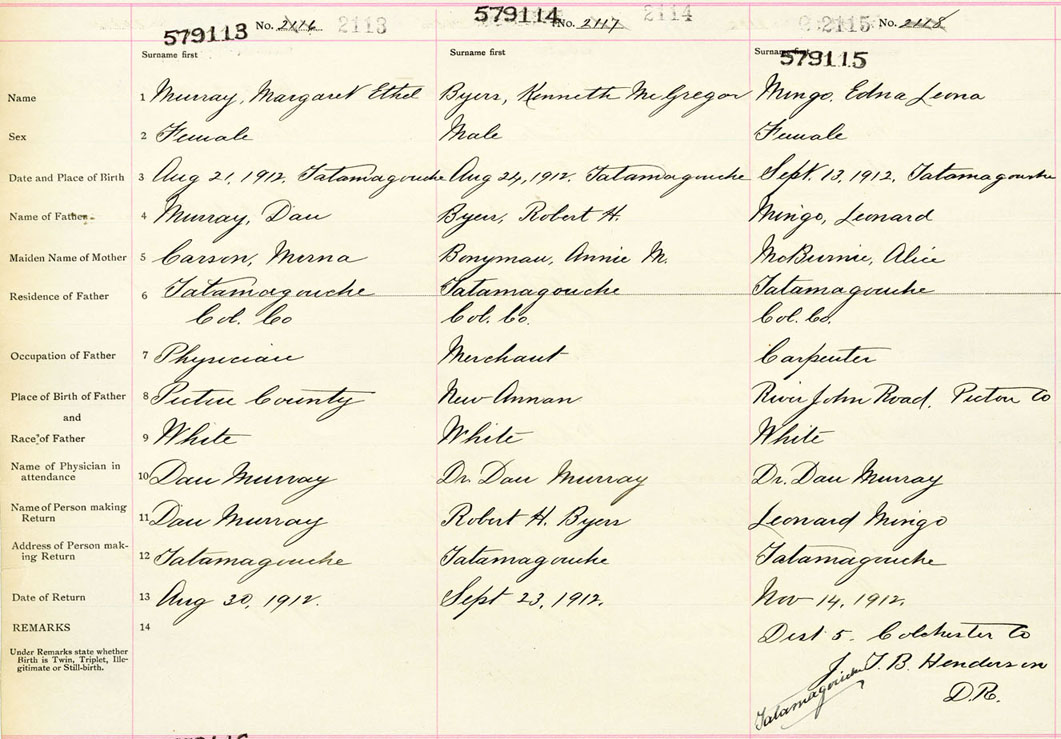 579113 No. 2116 2113 579114 No. 2117 2114 2115 No. 2118
Surname first Surname first Surname first 579115
Name 1 Murray, Margaret Ethel Byers, Kenneth McGregor Mingo, Edna Leona
Sex 2 Female Male Female
Date and Place of Birth 3 Aug 21, 1912, Tatamagouche Aug 24, 1912. Tatamagouche Sept. 13, 1912, Tatamagouche
Name of Father 4 Murray, Dan Byers, Robert H. Mingo, Leonard
Maiden Name of Mother 5 Carson, Merna Bonyman, Annie M. McBurnie, Alice
Residence of Father 6 Tatamagouche Tatamagouche Tatamagouche
Col. Co Col. Co. Col. Co.
Occupation of Father 7 Physician Merchant Carpenter
Place of Birth of Father 8 Pictou County New Annan River John Road, Pictou Co
and
Race of Father 9 White White White
Name of Physician in
attendance 10 Dan Murray Dr. Dan Murray Dr. Dan Murray
Name of Person making
Return 11 Dan Murray Robert H. Byers Leonard Mingo
Address of Person mak-
ing Return 12 Tatamagouche Tatamagouche Tatamagouche
Date of Return 13 Aug 30, 1912. Sept 23, 1912. Nov 14, 1912.
REMARKS 14 Dist 5. Colchester Co
Under Remarks state whether
Birth is Twin, Triplet, Ille-
gitimate or Still-birth.
J. T. B. Henderson
Tatamagouche D.R.